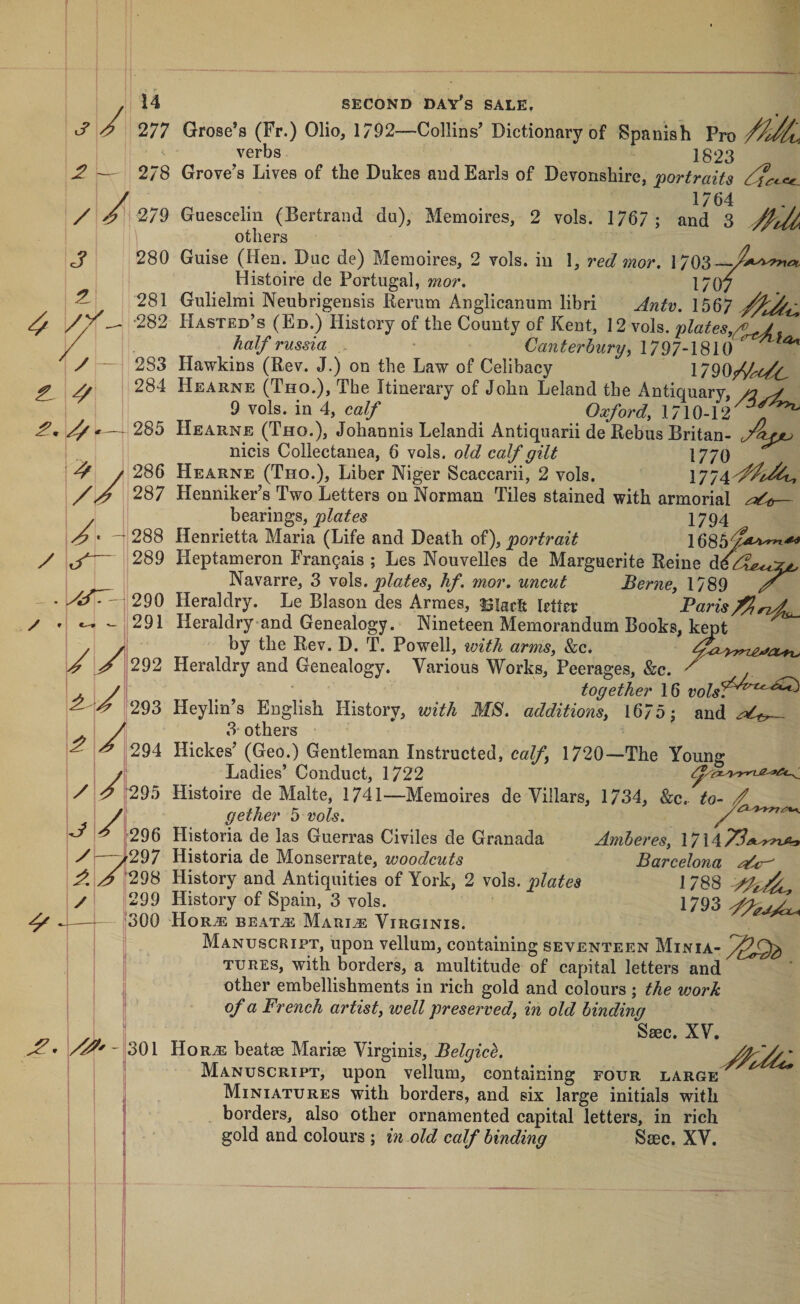 14 SECOND DAY'S SALE.
277 Grose's (Fr.) Olio, 1792—Collins' Dictionary of Spanish Pro
verbs 1823
2 — 278 Grove's Lives of the Dukes and Earls of Devonshire, portraits
1764
279 Guescelin (Bertrand du), Memoires, 2 vols. 1767; and 3
others
3 280 Guise (Hen. Duc de) Memoires, 2 vols. in 1, red mor. 1703—
Histoire de Portugal, mor. 1707
281 Gulielmi Neubrigensis Rerum Anglicanum libri Antv. 1567
282 HASTED'S (ED.) History of the County of Kent, 12 vols. plates,
half russia Canterbury, 1797-1810
283 Hawkins (Rev. J.) on the Law of Celibacy 1790
284 HEARNE (THO.), The Itinerary of John Leland the Antiquary,
9 vols. in 4, calf Oxford, 1710-12
285 HEARNE (THO.), Johannis Lelandi Antiquarii de Rebus Britan-
nicis Collectanea, 6 vols. old calf gilt 1770
286 HEARNE (THO.), Liber Niger Scaccarii, 2 vols. 1774
287 Henniker's Two Letters on Norman Tiles stained with armorial
bearings, plates 1794
288 Henrietta Maria (Life and Death of), portrait 1685
289 Heptameron Français; Les Nouvelles de Marguerite Reine de
Navarre, 3 vols. plates, hf. mor. uncut Berne, 1789
290 Heraldry. Le Blason des Armes, Black letter Paris
291 Heraldry and Genealogy. Nineteen Memorandum Books, kept
by the Rev. D. T. Powell, with arms, &c.
292 Heraldry and Genealogy. Various Works, Peerages, &c.
together 16 vols.
293 Heylin's English History, with MS. additions, 1675; and
3 others
294 Hickes' (Geo.) Gentleman Instructed, calf, 1720—The Young
Ladies' Conduct, 1722
295 Histoire de Malte, 1741—Memoires de Villars, 1734, &c. to-
gether 5 vols.
296 Historia de las Guerras Civiles de Granada Amberes, 1714
297 Historia de Monserrate, woodcuts Barcelona
298 History and Antiquities of York, 2 vols. plates 1788
299 History of Spain, 3 vols. 1793
300 HORÆ BEATÆ MARIÆ VIRGINIS.
MANUSCRIPT, upon vellum, containing SEVENTEEN MINIA-
TURES, with borders, a multitude of capital letters and
other embellishments in rich gold and colours; the work
of a French artist, well preserved, in old binding
Sæc. XV.
301 HORÆ beatæ Mariæ Virginis, Belgicè.
MANUSCRIPT, upon vellum, containing FOUR LARGE
MINIATURES with borders, and six large initials with
borders, also other ornamented capital letters, in rich
gold and colours; in old calf binding Sæc. XV.